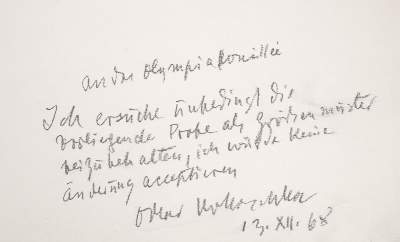 an das Olympiakomitée
Ich ersuche unbedingt die
vorliegende Probe als Größenmuster
beizubehalten, ich würde keine
Änderung acceptieren
Oskar Kokoschka
13. XII. 68